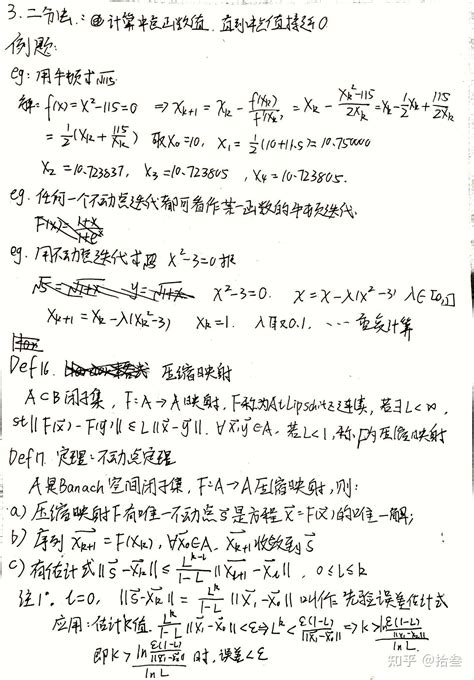 3.二分法.:①计算中点函数值.直到中点值接近0
例题:
eg:用牛顿求√115.
解:f(x)=x²-115=0 ⇒ x_{k+1}=x_k-f(x_k)/f'(x_k)=x_k-(x_k²-115)/(2x_k)=x_k-1/2x_k+115/(2x_k)
=1/2(x_k+115/x_k) 取x₀=10, x₁=1/2(10+11.5)=10.75000
x₂=10.723837, x₃=10.723805, x₄=10.723805.
eg.任何一个不动点迭代都可看作某一函数的牛顿迭代.
F(x)=
eg.用不动点迭代求 x²-3=0根
x²-3=0. x=x-λ(x²-3) λ∈[0,1]
x_{k+1}=x_k-λ(x_k²-3) x_k=1. λ取0.1, ⋯重复计算
Def16. 压缩映射
A⊂B闭子集, F:A→A映射, F称为A上Lipschitz连续,若∃L<∞,
st‖F(x⃗)-F(y⃗)‖≤L‖x⃗-y⃗‖. ∀x⃗,y⃗∈A. 若L<1,称F为压缩映射
Def17.定理:不动点定理
A是Banach空间闭子集, F:A→A压缩映射,则:
a)压缩映射F有唯一不动点s⃗是方程x⃗=F(x⃗)的唯一解;
b)序列x⃗_{k+1}=F(x⃗_k), ∀x⃗₀∈A. x⃗_{k+1}收敛到s⃗
c)有估计式‖s⃗-x⃗_k‖≤L^{k-l}/(1-L)‖x⃗_{l+1}-x⃗_l‖, 0≤l≤k
注1°. l=0, ‖s⃗-x⃗_k‖=L^k/(1-L)‖x⃗₁-x⃗₀‖叫作先验误差估计式
应用:估计k值. L^k/(1-L)‖x⃗₁-x⃗₀‖<ε⇔L^k<ε(1-L)/‖x⃗₁-x⃗₀‖⇒k>ln(ε(1-L)/‖x₁-x₀‖)/lnL
即k>ln(ε(1-L)/‖x₁-x₀‖)/lnL时,误差<ε
知乎 @拾叁